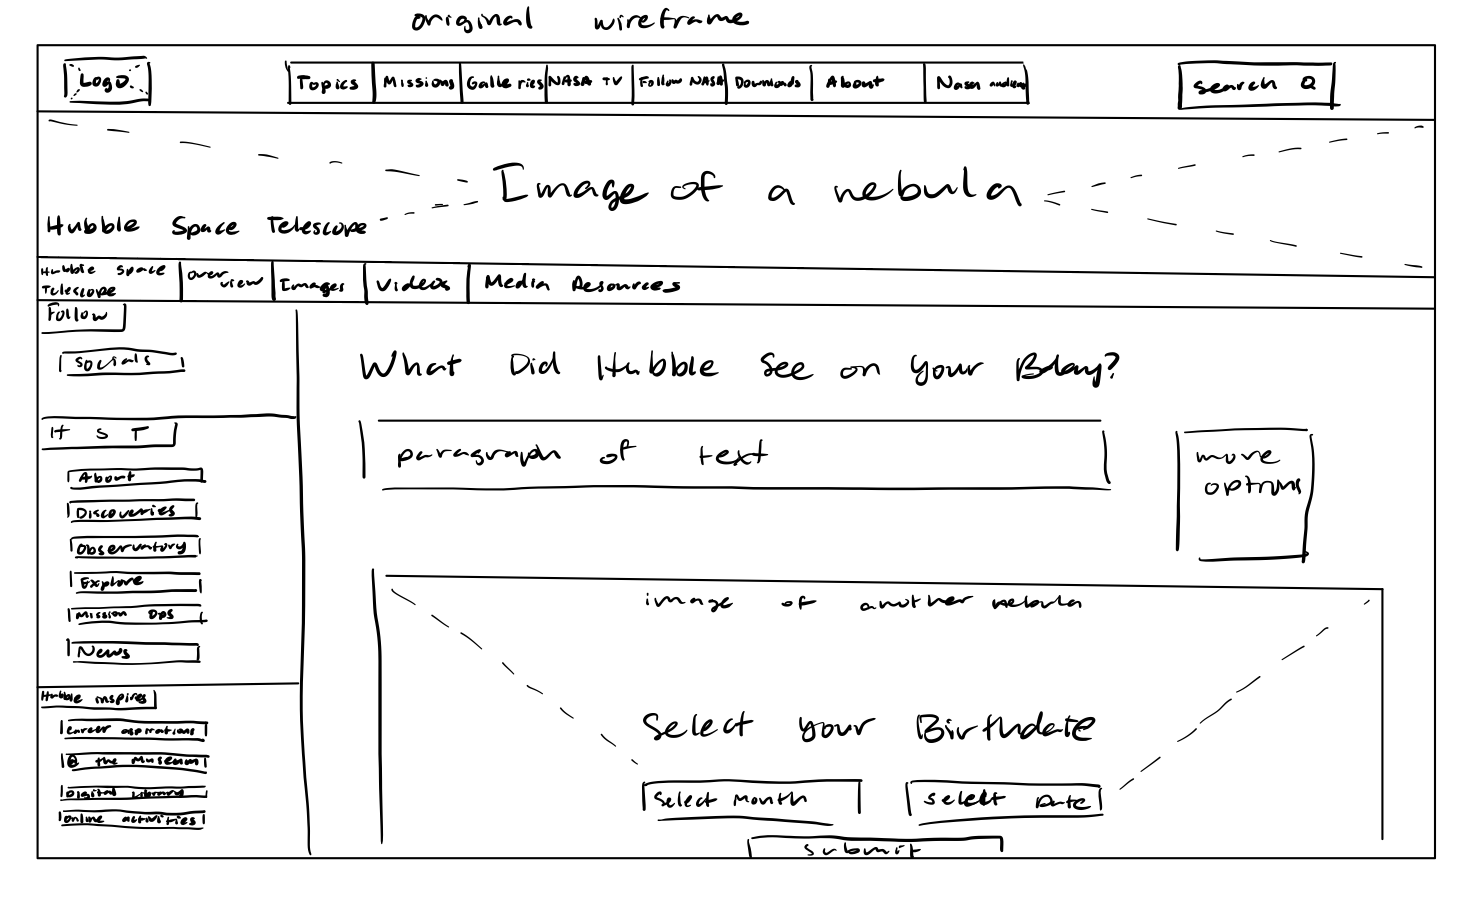 original wireframe
Logo
Topics Missions Galleries NASA TV Follow NASA Downloads About Nasa audience
search Q
Image of a nebula
Hubble Space Telescope
Hubble Space
Telescope
over
view
Images
Videos
Media Resources
Follow
Socials
H S T
About
Discoveries
Observatory
Explore
Mission Ops
News
Hubble inspires
career aspirations
@ the Museum
Digital Library
online activities
What Did Hubble See on Your Bday?
paragraph of text
more
options
image of another nebula
Select your Birthdate
Select Month
select Date
submit